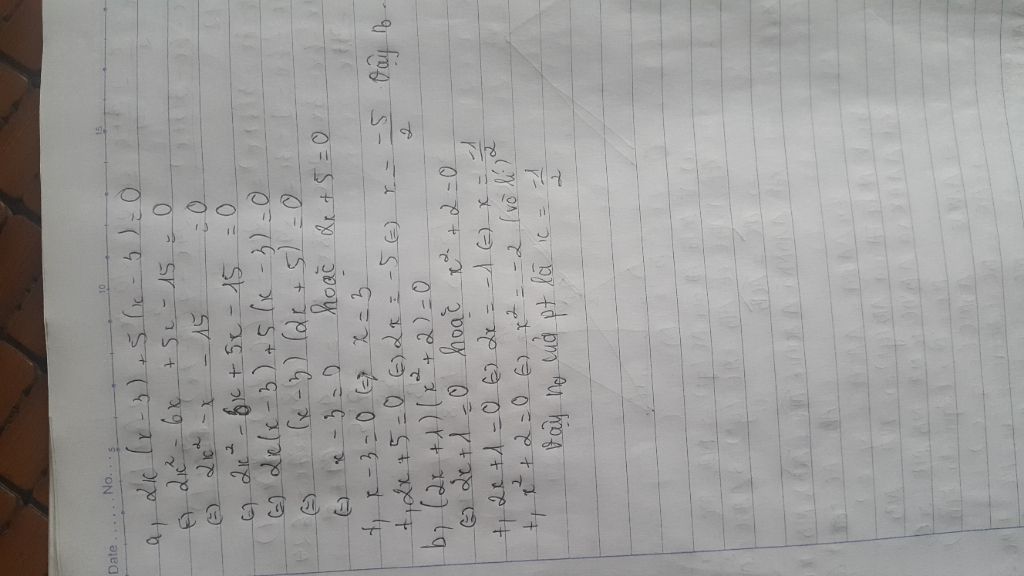 Date ....... No. ...
5 10 15
a, 2x (x - 3) + 5 (x - 3) = 0
(=) 2x² - 6x + 5x - 15 = 0
(=) 2x² - x - 15 = 0
(=) 2x² - 6x + 5x - 15 = 0
(=) 2x(x - 3) + 5(x - 3) = 0
(=) (x - 3) (2x + 5) = 0
(=) x - 3 = 0 hoặc 2x + 5 = 0
+, x - 3 = 0 (=) x = 3
+, 2x + 5 = 0 (=) 2x = -5 (=) x = -5/2 Vậy n₀...
b, (2x + 1) (x² + 2) = 0
(=) 2x + 1 = 0 hoặc x² + 2 = 0
+, 2x + 1 = 0 (=) 2x = -1 (=) x = -1/2
+, x² + 2 = 0 (=) x² = -2 (vô lí)
Vậy n₀ của pt là x = -1/2